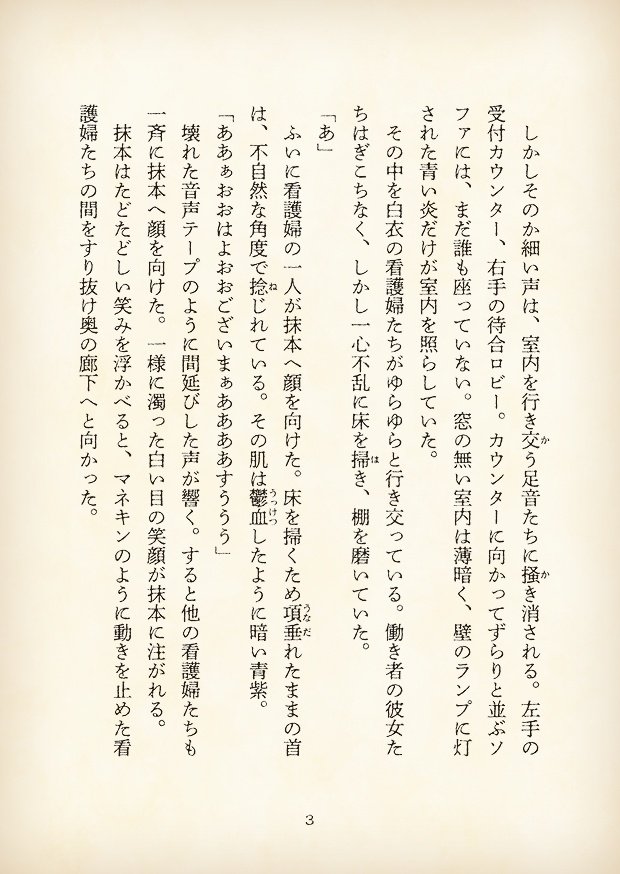 しかしそのか細い声は、室内を行き交う足音たちに掻き消される。左手の
受付カウンター、右手の待合ロビー。カウンターに向かってずらりと並ぶソ
ファには、まだ誰も座っていない。窓の無い室内は薄暗く、壁のランプに灯
された青い炎だけが室内を照らしていた。
その中を白衣の看護婦たちがゆらゆらと行き交っている。働き者の彼女た
ちはぎこちなく、しかし一心不乱に床を掃き、棚を磨いていた。
「あ」
ふいに看護婦の一人が抹本へ顔を向けた。床を掃くため項垂れたままの首
は、不自然な角度で捻じれている。その肌は鬱血したように暗い青紫。
「ああぁおおはよおおございまぁああああすううう」
壊れた音声テープのように間延びした声が響く。すると他の看護婦たちも
一斉に抹本へ顔を向けた。一様に濁った白い目の笑顔が抹本に注がれる。
抹本はたどたどしい笑みを浮かべると、マネキンのように動きを止めた看
護婦たちの間をすり抜け奥の廊下へと向かった。
3